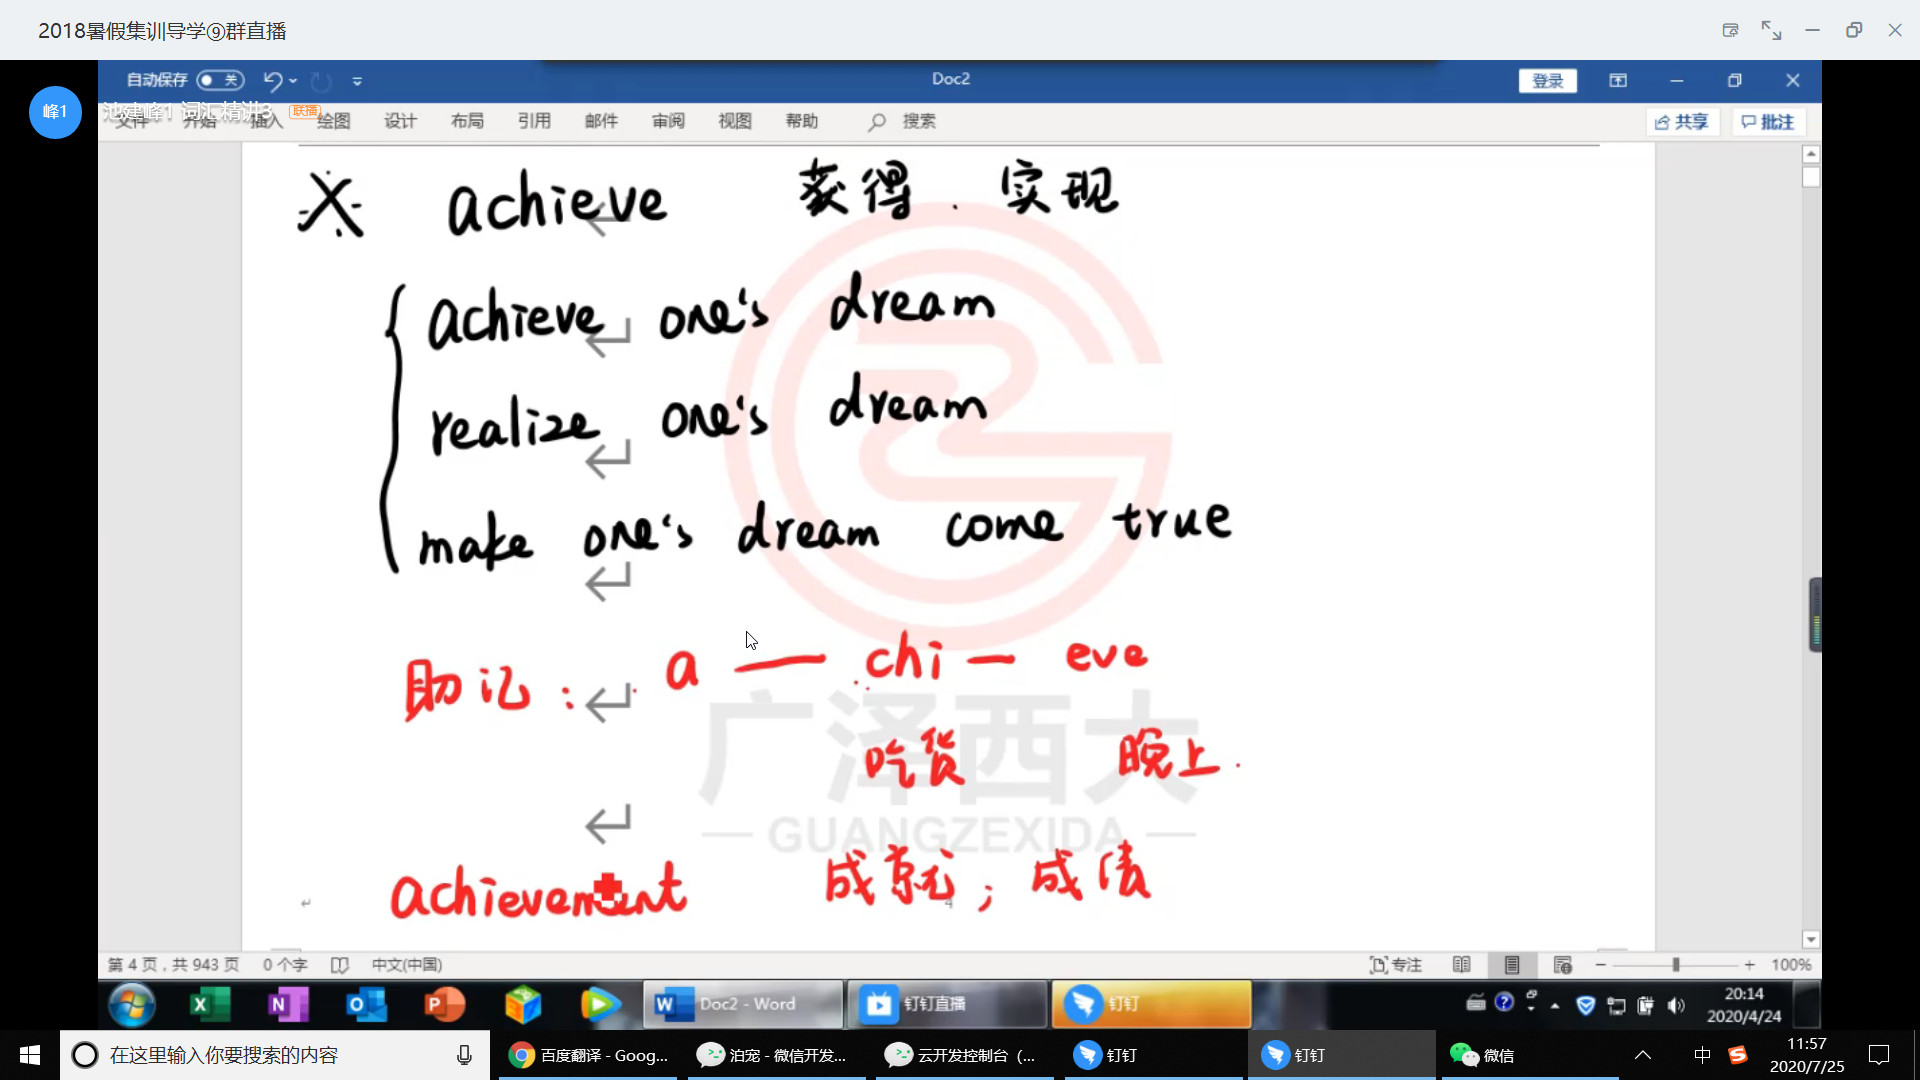 2018暑假集训导学⑨群直播
自动保存 关
Doc2
登录
峰1
池建峰1 词汇精讲3 联播
文件 开始 插入 绘图 设计 布局 引用 邮件 审阅 视图 帮助 搜索
共享 批注
※ achieve 获得. 实现
achieve one's dream
realize one's dream
make one's dream come true
助记: a — chi — eve
吃货 晚上.
广泽西大
— GUANGZEXIDA —
achievement 成就; 成绩
4
第 4 页，共 943 页 0 个字 中文(中国)
专注 100%
Doc2 - Word 钉钉直播 钉钉
20:14
2020/4/24
在这里输入你要搜索的内容
百度翻译 - Goog... 泊宠 - 微信开发... 云开发控制台（... 钉钉 钉钉 微信
中
11:57
2020/7/25